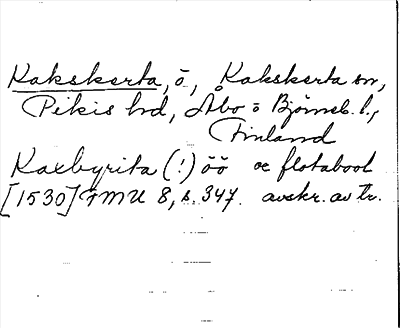 Kakskerta, ö., Kakskerta sn,
Pikis hd, Åbo o Björneb. l.,
Finland
Kaxbyrita (!) öö oc flotabool
[1530] FMU 8, s. 347. avskr. av tr.